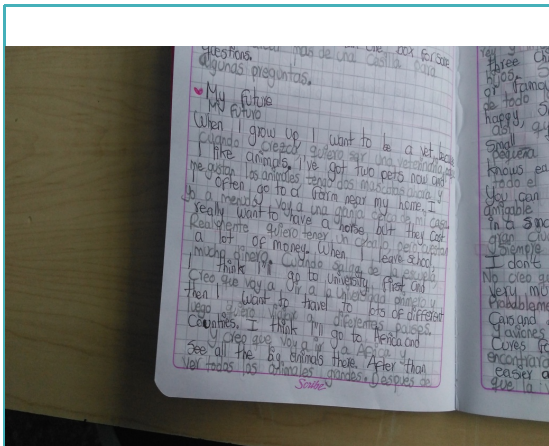 más de una casilla para
the box for some
questions.
algunas preguntas.
My Future
My Futuro
When I grow up I want to be a vet, because
cuando crezca quiero ser una veterinaria,
I like animals. I've got two pets now and
me gustan los animales tengo dos mascotas ahora y
I often go to a farm near my home. I
yo a menudo voy a una granja cerca de mi casa.
really want to have a horse but they cost
Realmente quiero tener un caballo, pero cuestan
a lot of money. When I leave school,
mucho dinero. Cuando salga de la escuela
I think I'll go to university first and
Creo que voy a ir a la universidad primero y
then I want to travel to lots of different
luego quiero viajar a diferentes países.
Countries. I think I'll go to Africa and
y creo que voy a ir a Africa y
See all the big animals there. After than
ver todos los animales grandes. Despues de
Scribe
three
hijos.
or
de todo
happy,
asi,
Small
pequeña
knows
todo el
You can
amigable
in a small
gran
y siempre
I don't
No creo
very mu
Probableme
Cars and
y aviones
Cures fo
encontrara
easier a
que la